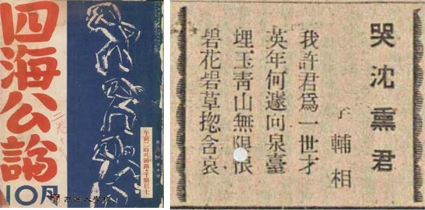 四海公論
10月
哭沈熏君
輔相
我許君爲一世才
英年何遽向泉臺
埋玉靑山無限悵
碧花碧草摠含哀